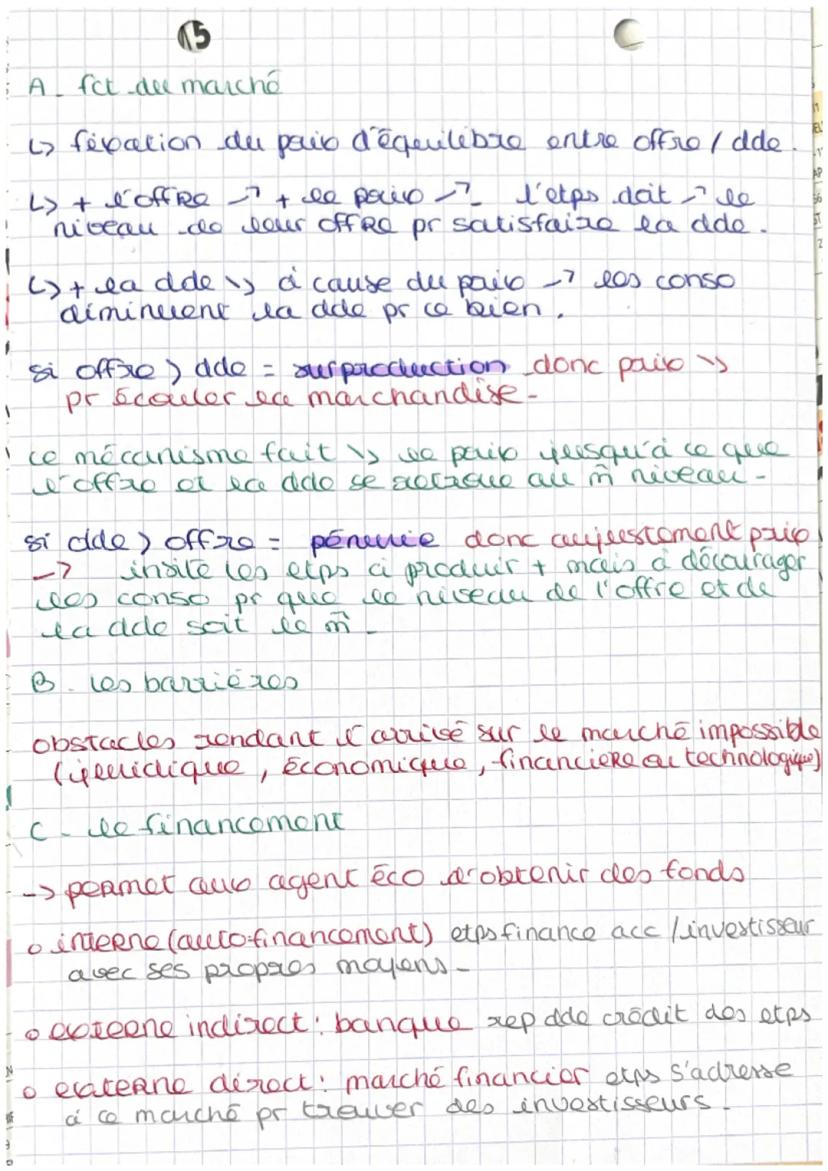 15
A - fct du marché
↳ fixation du prix d'équilibre entre offre / dde.
↳ + l'offre ↗ + le prix ↗. l'etps doit ↗ le
niveau de leur offre pr satisfaire la dde.
↳ + la dde ↘ à cause du prix ↗ les conso
diminuent la dde pr ce bien.
si offre > dde = surproduction donc prix ↘
pr écouler la marchandise.
ce mécanisme fait ↘ le prix jusqu'à ce que
l'offre et la dde se retrouve au m̂ niveau.
si dde > offre = pénurie donc aujustement prix
↗ insite les etps à produire + mais à décourager
les conso pr que le niveau de l'offre et de
la dde soit le m̂.
B. les barrières
obstacles rendant l'arrivé sur le marché impossible
(juridique, économique, financière ou technologique)
C - le financement
-> permet aux agent éco d'obtenir des fonds
o interne (autofinancement) etps finance acc / investisseur
avec ses propres moyens.
o externe indirect : banque rep dde crédit des etps
o externe direct : marché financier etps s'adresse
à ce marché pr trouver des investisseurs.